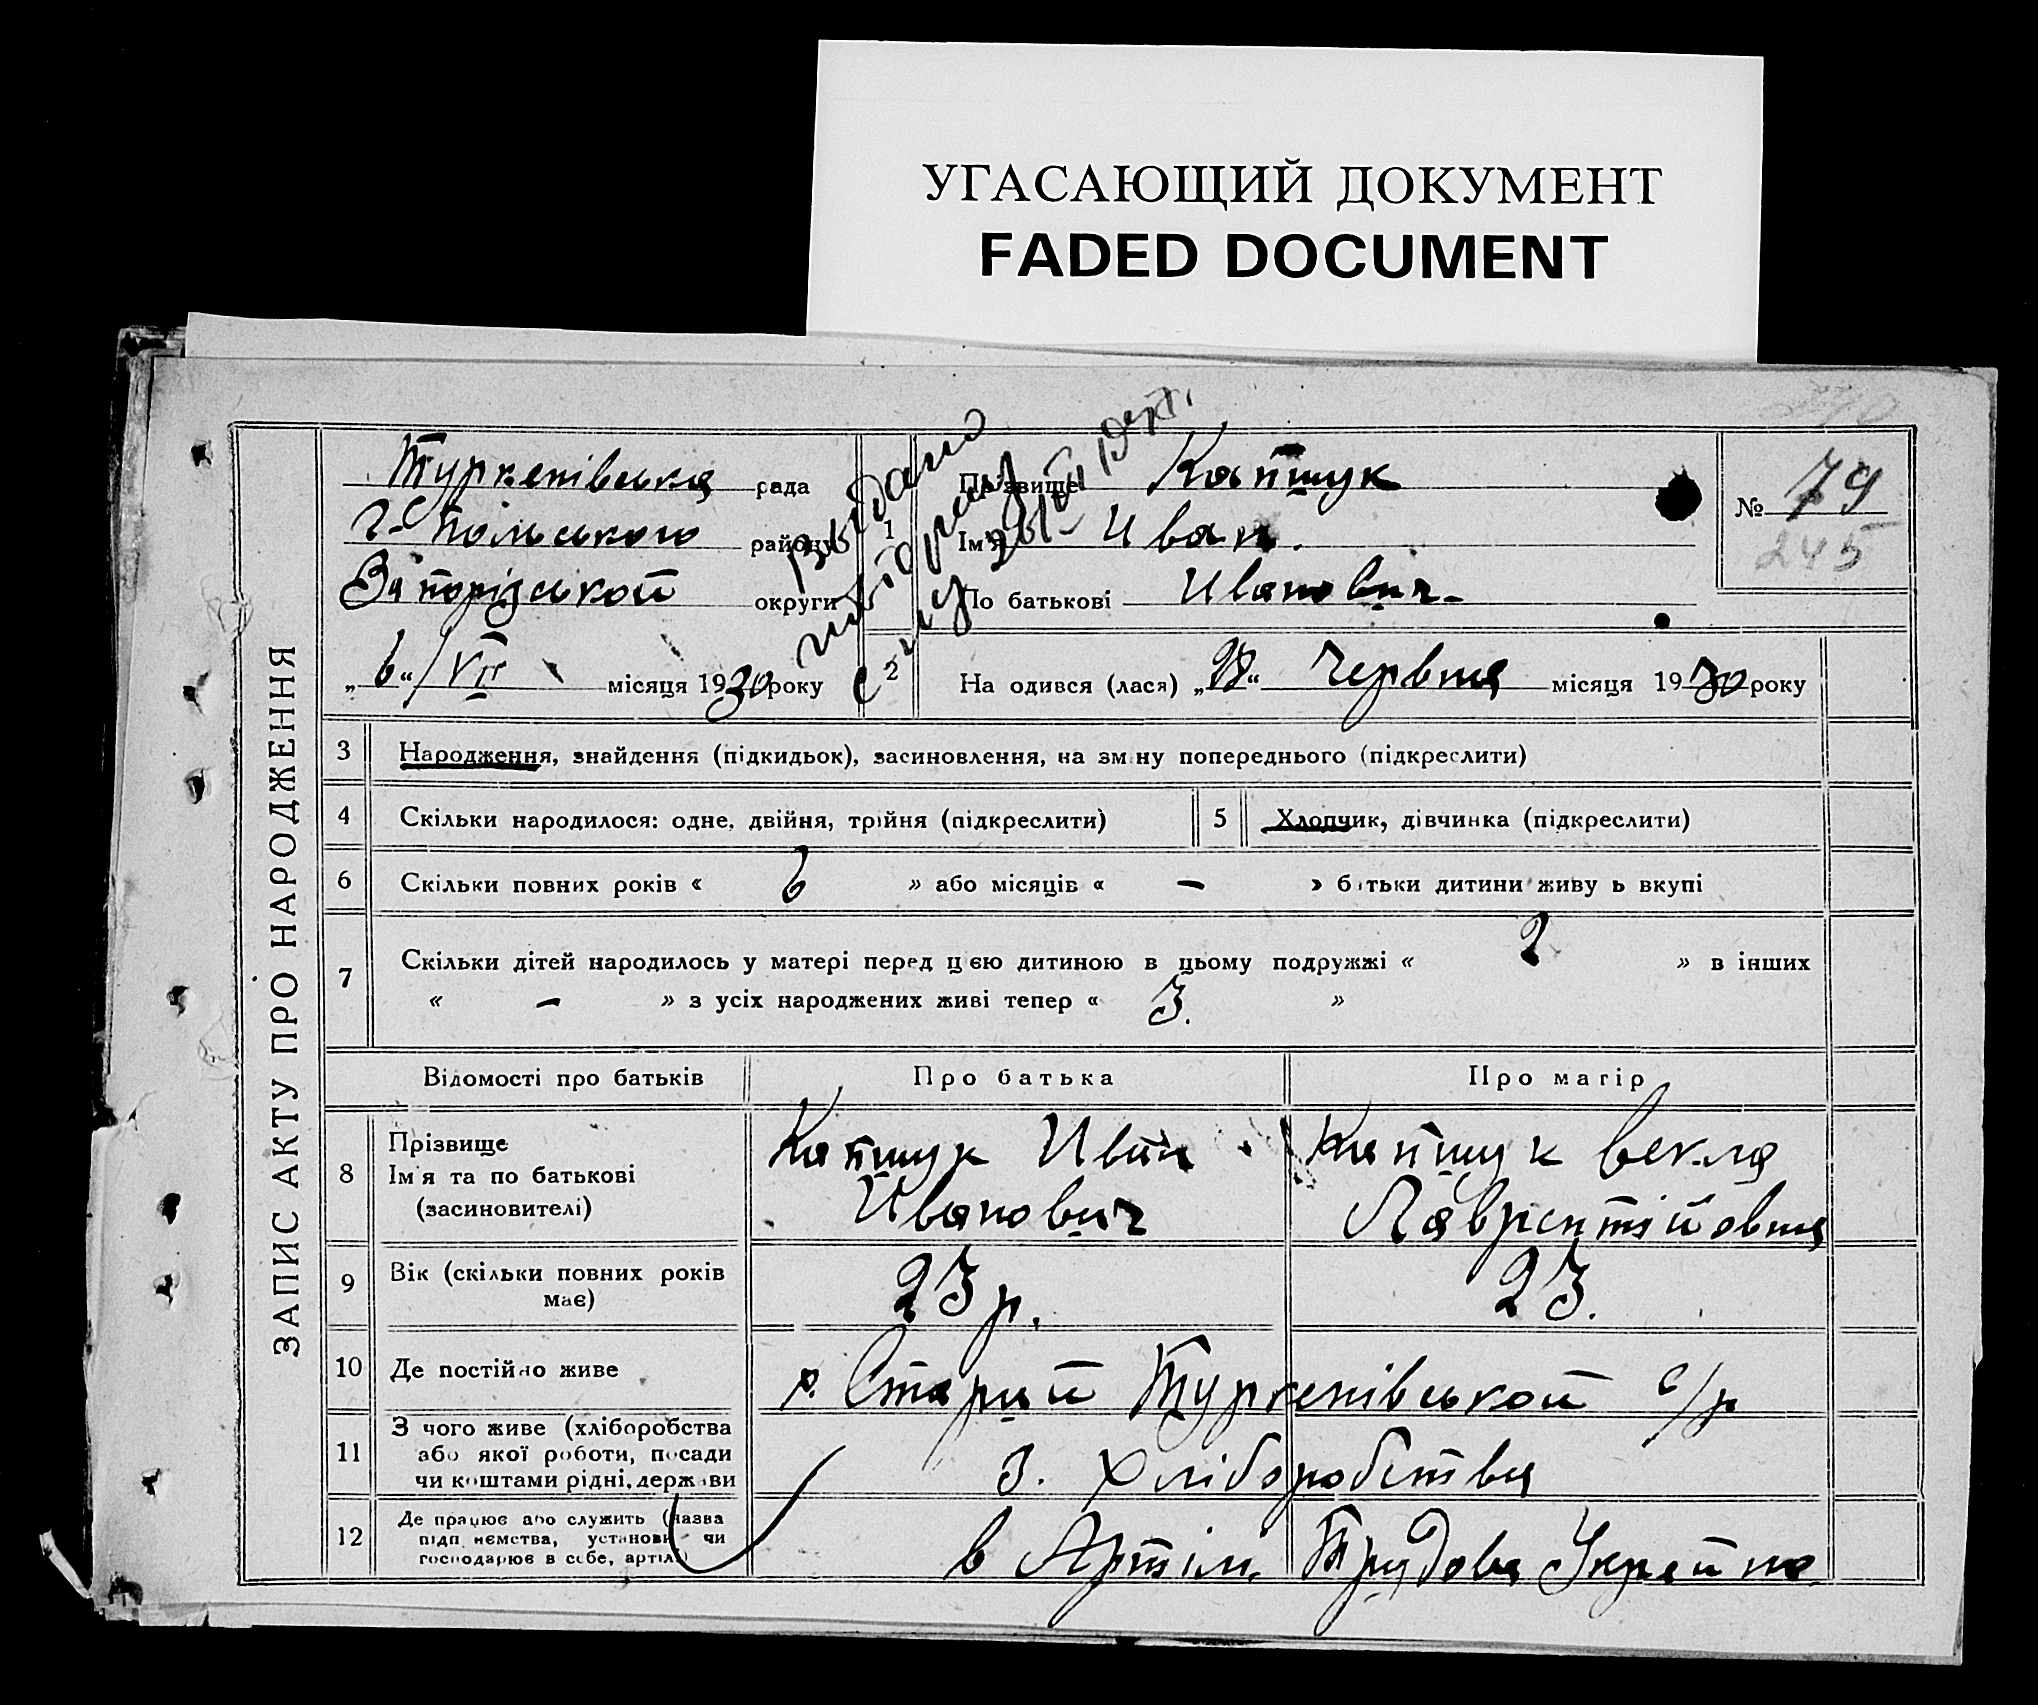 УГАСАЮЩИЙ ДОКУМЕНТ
FADED DOCUMENT
ЗАПИС АКТУ ПРО НАРОДЖЕННЯ
Туркенівська рада
Г-Польського району
Запорізської округи
„6“/VII місяця 1930 року
Выдано
1
Прізвище Капшук
Ім'я Иван.
По батькові Иванович
№ 79
245
2
На одився (лася) „ “ Червня місяця 1930 року
3 Народження, знайдення (підкидьок), засиновлення, на зміну попереднього (підкреслити)
4 Скільки народилося: одне, двійня, трійня (підкреслити)
5 Хлопчик, дівчинка (підкреслити)
6 Скільки повних років « 6 » або місяців « – » батьки дитини живуть вкупі
7 Скільки дітей народилось у матері перед цією дитиною в цьому подружжі « 2 » в інших
« – » з усіх народжених живі тепер « 3. »
Відомості про батьків Про батька Про матір
8 Прізвище
Ім'я та по батькові
(засиновителі)
Капшук Иван
Иванович
Капшук Векла
Лаврентійовна
9 Вік (скільки повних років
має)
23 р. 23.
10 Де постійно живе
Старий Туркенівськой с/р
11 З чого живе (хліборобства
або якої роботи, посади
чи коштами рідні, держави
З. Хліборобства
12 Де працює або служить (назва
підприємства, установи чи
господарює в себе, артілі)
в Артіли Трудова Украйна